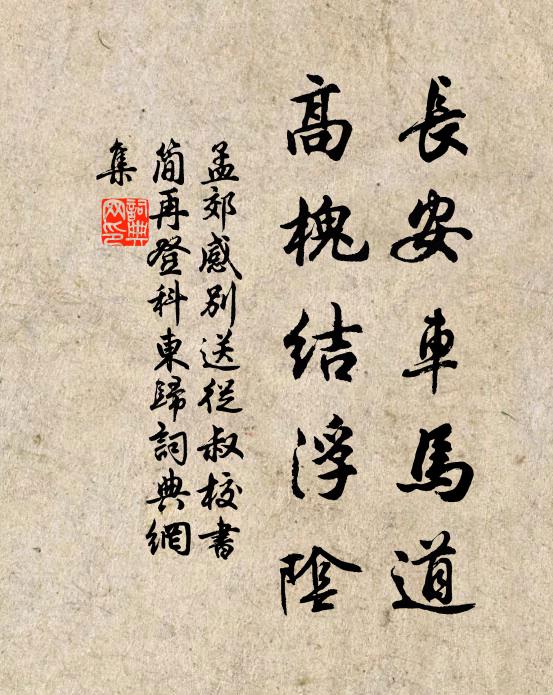 長安車馬道
高槐結浮陰
孟郊感別送從叔校書
簡再登科東歸詞典網
集
詞典網印